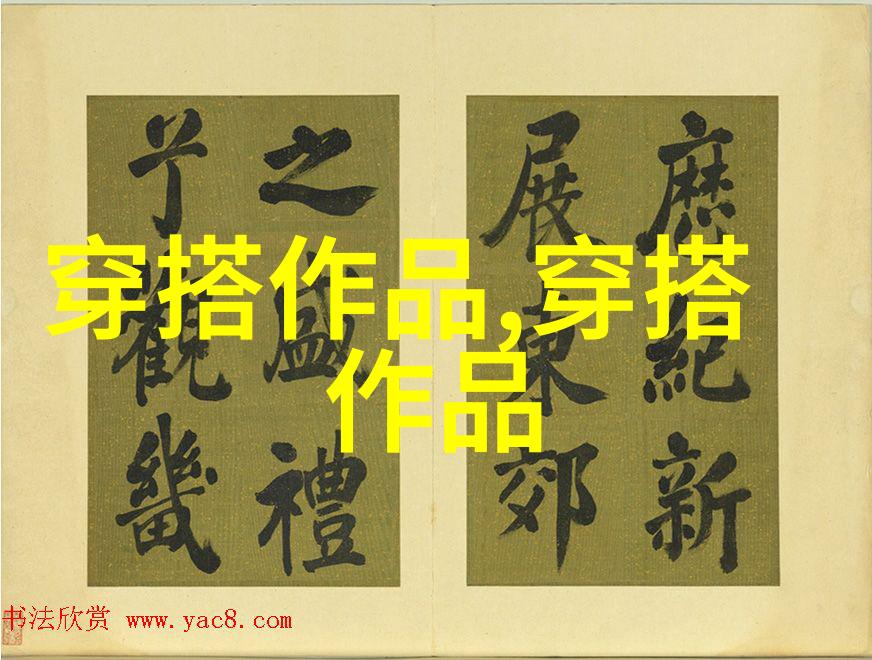 穿搭作品,穿搭
作品
紀新
展東郊
之盛禮
觀畿
书法欣赏 www.yac8.com